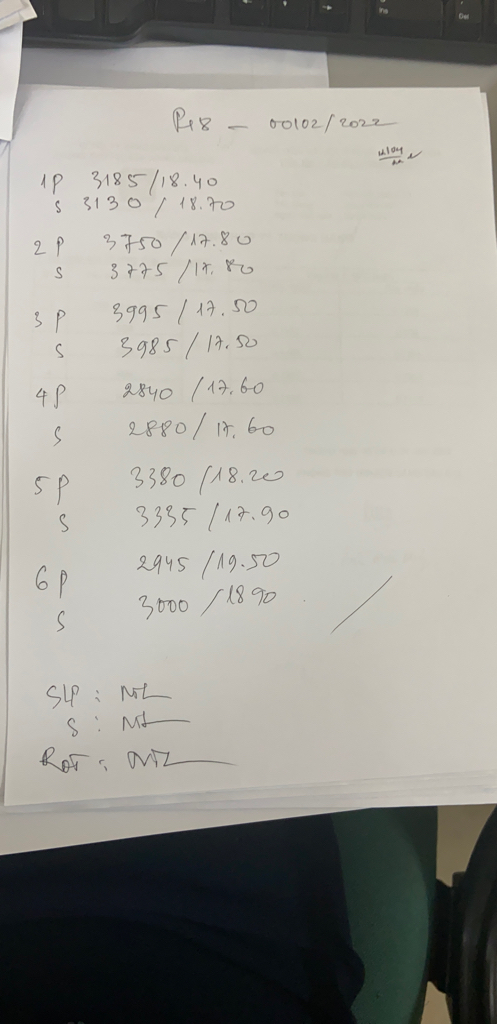 - 00102/2022
1P 3185/18.40
S 3130 / 18.70
2 P 3750 /17.80
S 3775 /17.80
3 P 3995 / 17.50
S 3985 / 17.50
4P 2840 /17.60
S 2880/ 17.60
5 P 3380 /18.20
S 3335 /17.90
6 P 2945 /19.50
S 3000 /18 90
SLP : NIL
S : NIL
ROT : NIL